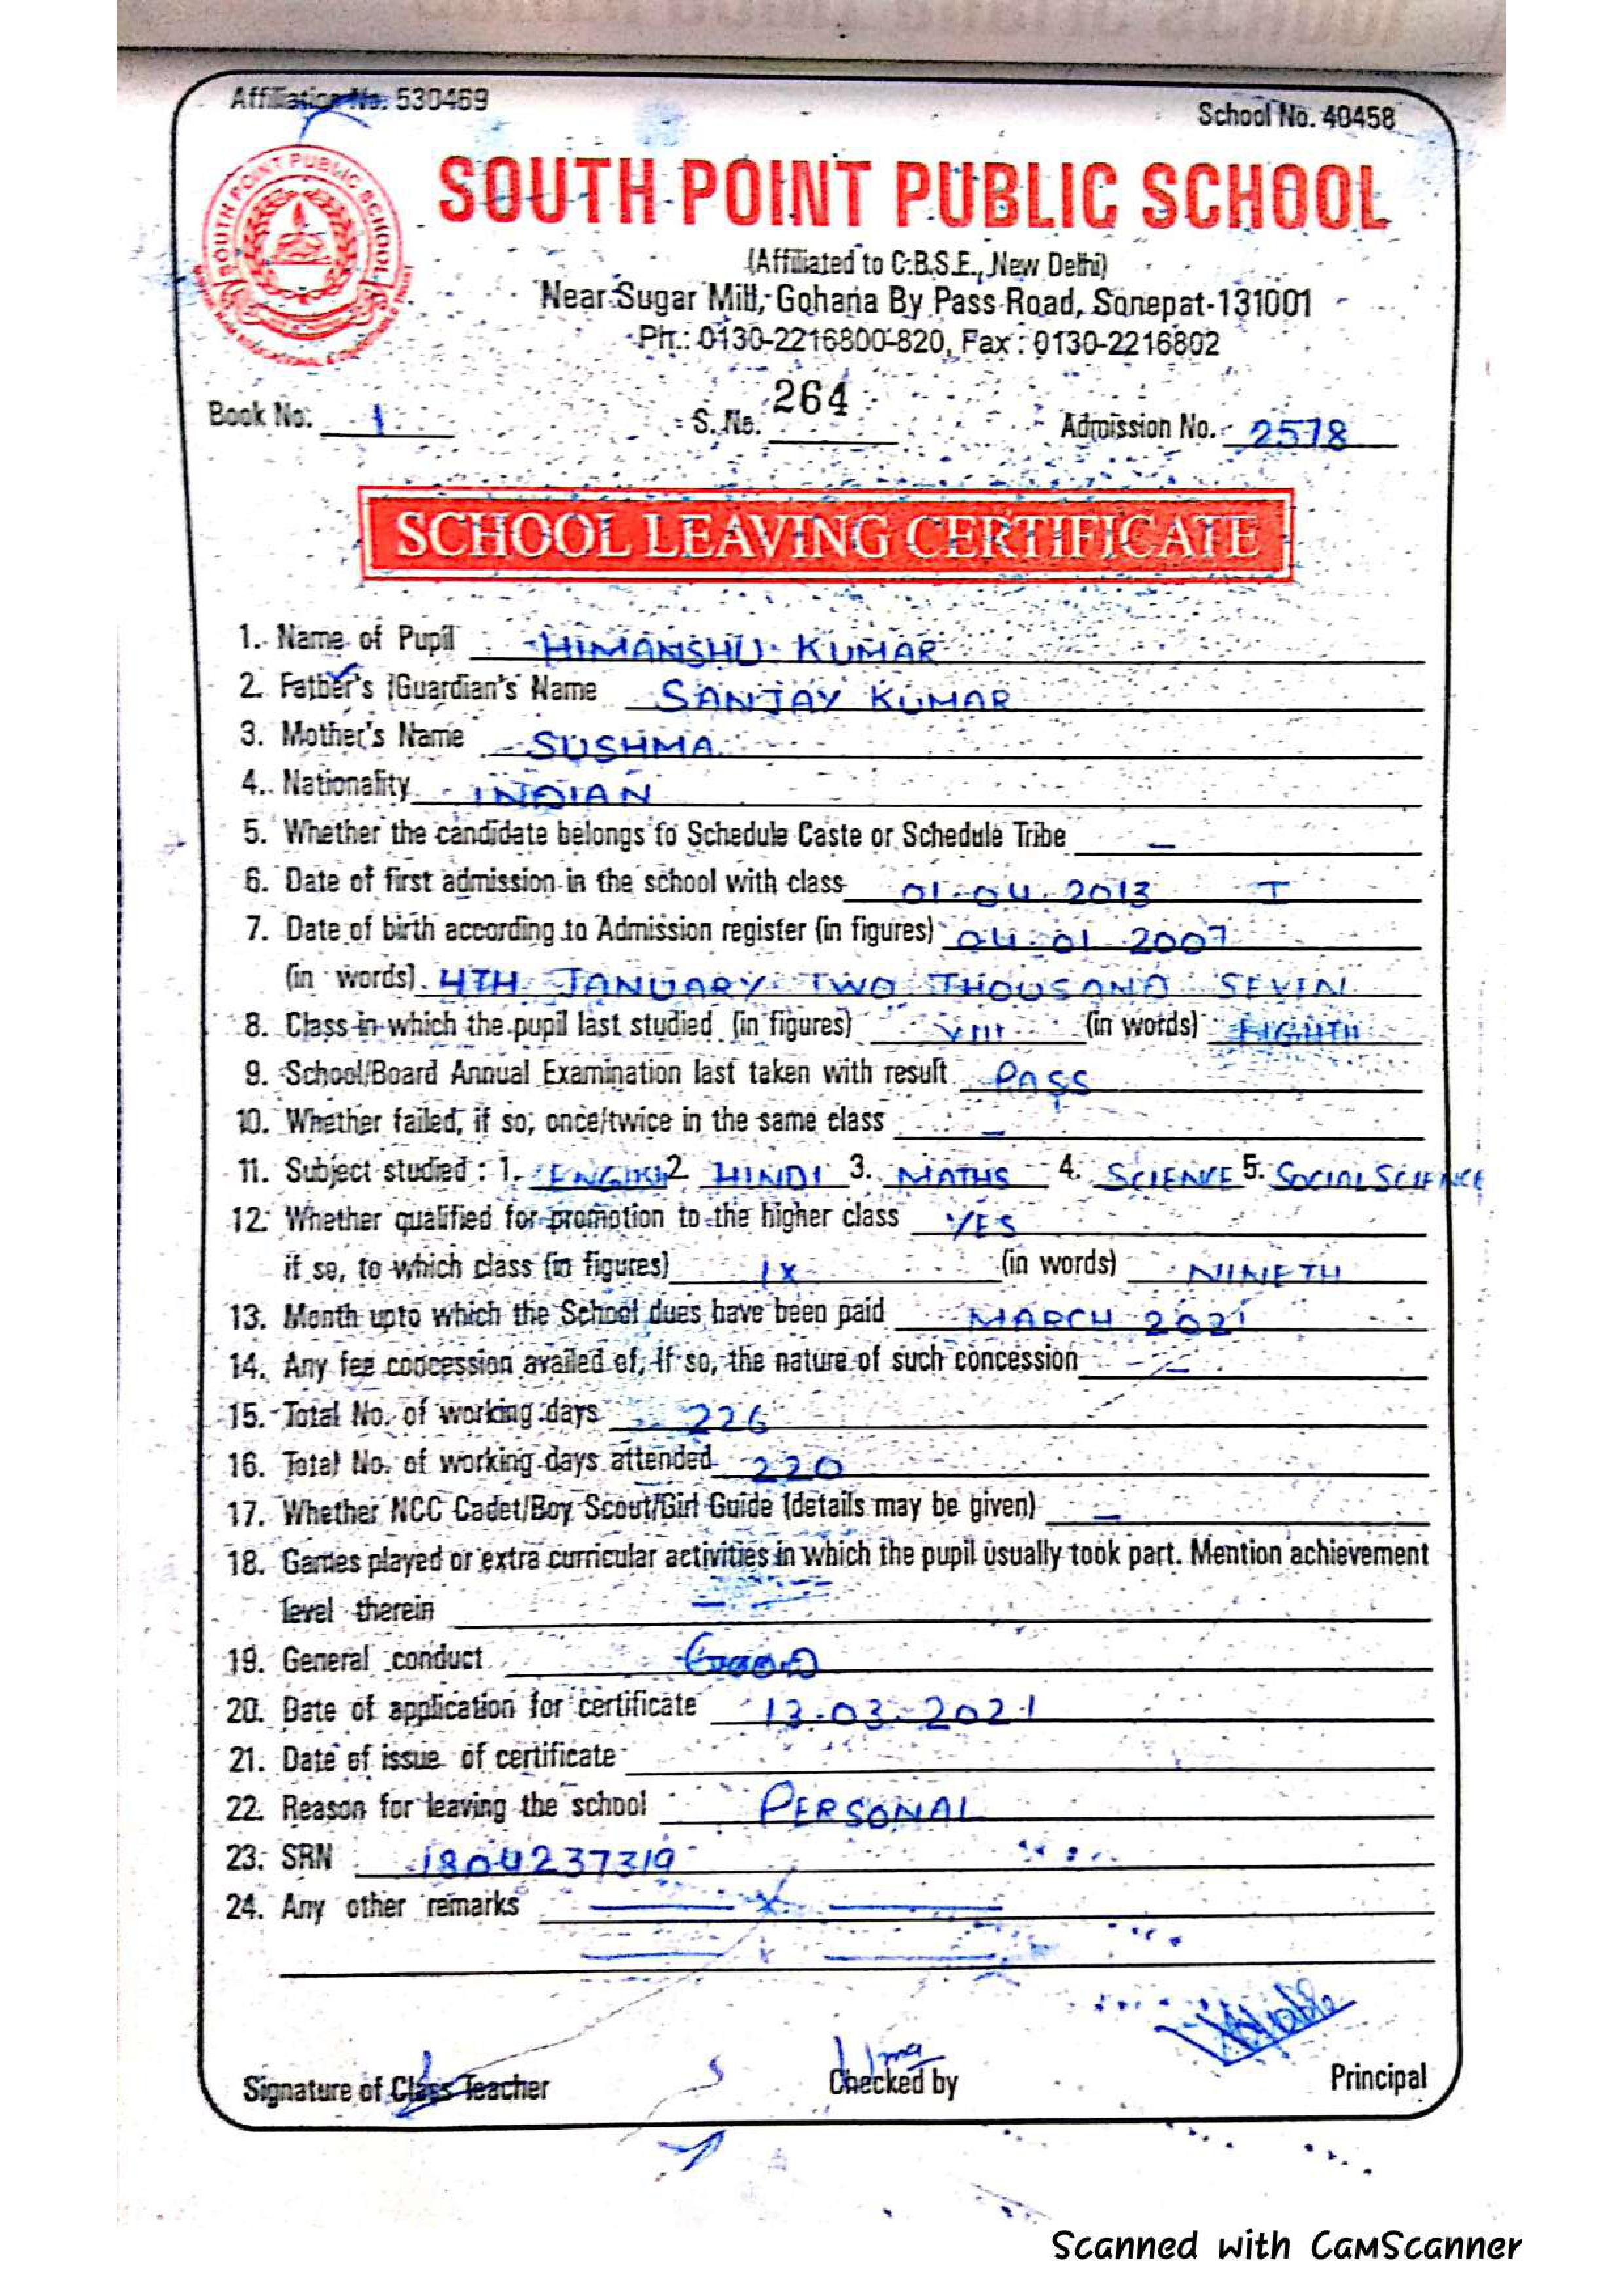 Affiliation No. 530469
School No. 40458
SOUTH POINT PUBLIC SCHOOL
SOUTH POINT PUBLIC SCHOOL
(Affiliated to C.B.S.E., New Delhi)
Near Sugar Mill, Gohana By Pass Road, Sonepat-131001
Ph.: 0130-2216800-820, Fax : 0130-2216802
Book No. 1 S. No. 264 Admission No. 2578
SCHOOL LEAVING CERTIFICATE
1. Name of Pupil HIMANSHU KUMAR
2. Father's /Guardian's Name SANJAY KUMAR
3. Mother's Name SUSHMA
4. Nationality INDIAN
5. Whether the candidate belongs to Schedule Caste or Schedule Tribe —
6. Date of first admission in the school with class 01.04.2013 I
7. Date of birth according to Admission register (in figures) 04.01.2007
(in words) 4TH JANUARY TWO THOUSAND SEVEN
8. Class in which the pupil last studied (in figures) VIII (in words) EIGHTH
9. School/Board Annual Examination last taken with result PASS
10. Whether failed, if so, once/twice in the same class —
11. Subject studied : 1. ENGLISH 2. HINDI 3. MATHS 4. SCIENCE 5. SOCIAL SCIENCE
12. Whether qualified for promotion to the higher class YES
if so, to which class (in figures) IX (in words) NINETH
13. Month upto which the School dues have been paid MARCH 2021
14. Any fee concession availed of, If so, the nature of such concession —
15. Total No. of working days 226
16. Total No. of working days attended 220
17. Whether NCC Cadet/Boy Scout/Girl Guide (details may be given) —
18. Games played or extra curricular activities in which the pupil usually took part. Mention achievement
level therein —
19. General conduct GOOD
20. Date of application for certificate 13.03.2021
21. Date of issue of certificate
22. Reason for leaving the school PERSONAL
23. SRN 1804237319
24. Any other remarks — x —
— x —
Signature of Class Teacher Checked by Principal
Scanned with CamScanner